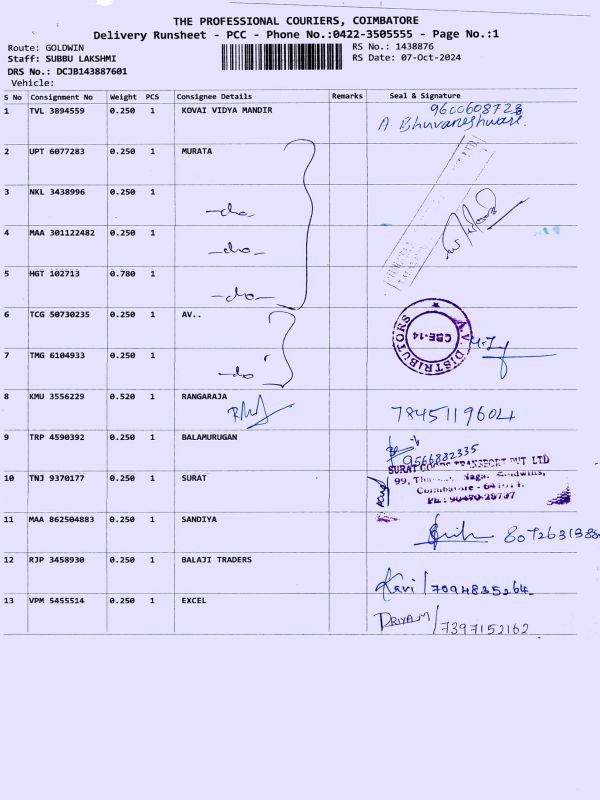 THE PROFESSIONAL COURIERS, COIMBATORE
Delivery Runsheet - PCC - Phone No.:0422-3505555 - Page No.:1
Route: GOLDWIN
RS No.: 1438876
Staff: SUBBU LAKSHMI
RS Date: 07-Oct-2024
DRS No.: DCJB143887601
Vehicle:
S No Consignment No Weight PCS Consignee Details Remarks Seal & Signature
1 TVL 3894559 0.250 1 KOVAI VIDYA MANDIR
9600608723
A Bhuvaneshwari.
2 UPT 6077283 0.250 1 MURATA
3 NKL 3438996 0.250 1
-do-
4 MAA 301122482 0.250 1
-do-
5 HGT 102713 0.780 1
-do-
6 TCG 50730235 0.250 1 AV..
A.V. DISTRIBUTORS
CBE-14
7 TMG 6104933 0.250 1
-do-
8 KMU 3556229 0.520 1 RANGARAJA
7845119604
9 TRP 4590392 0.250 1 BALAMURUGAN
9566882335
10 TNJ 9370177 0.250 1 SURAT
SURAT GOODS TRANSPORT PVT LTD
99, Nagar, Goldwins,
Coimbatore - 641014.
Ph : 90470-29737
11 MAA 862504883 0.250 1 SANDIYA
12 RJP 3458930 0.250 1 BALAJI TRADERS
Kavi / 7094835264
13 VPM 5455514 0.250 1 EXCEL
PRIYA.M / 7397152162